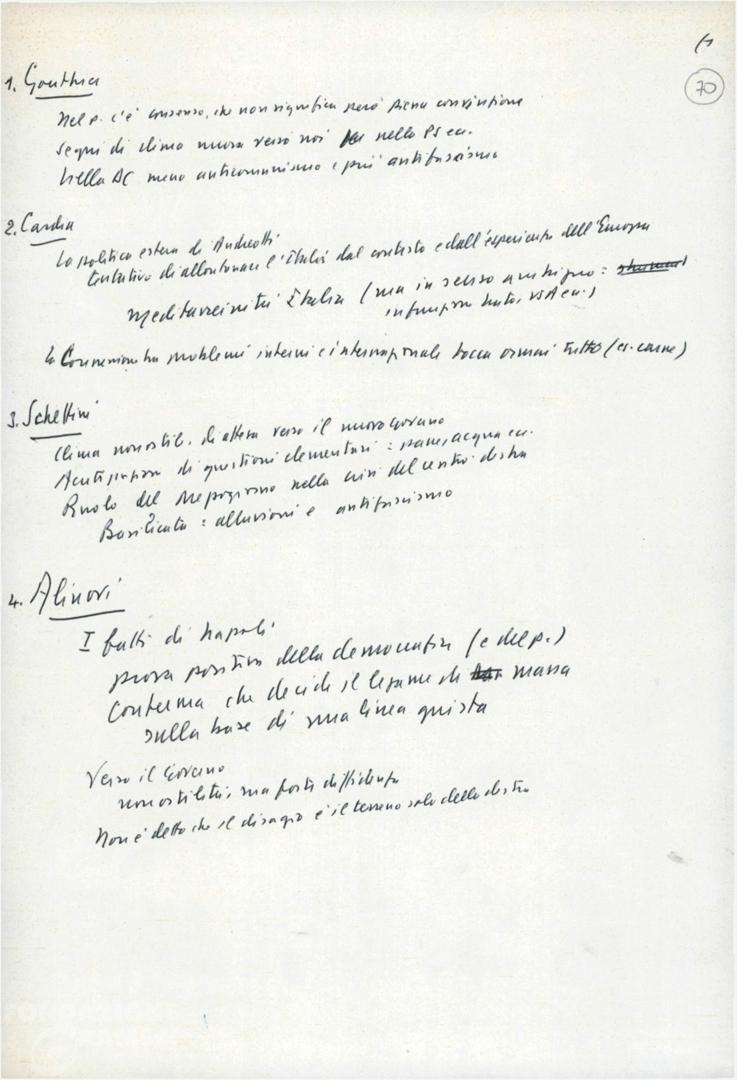 (1
70
1. Gouthier
Nel p. c'è consenso, che non significa però piena convinzione
segni di clima nuovo verso noi nella PS ecc.
Nella DC meno anticomunismo e più antifascismo
2. Cardia
La politica estera di Andreotti
tentativo di allontanare l'Italia dal contesto e dall'esperienza dell'Europa
Mediterraneità Italia (ma in senso ambiguo:
in funzione Nato, USA ecc.)
la Comunione ha problemi interni e internazionale tocca ormai tutto (es. carne)
3. Schettini
Clima non ostile, di attesa verso il nuovo Governo
Acutizzazione di questioni elementari: pane, acqua ecc.
Ruolo del Mezzogiorno nella crisi del centro destra
Basilicata: alluvioni e antifascismo
4. Alinovi
I fatti di Napoli
prova positiva della democrazia (e del p.)
Conferma che decide il legame di massa
sulla base di una linea giusta
Verso il Governo
non ostilità, ma forte diffidenza
Non è detto che il disagio è il terreno solo della destra
FONDAZIONE
GRAMSCI